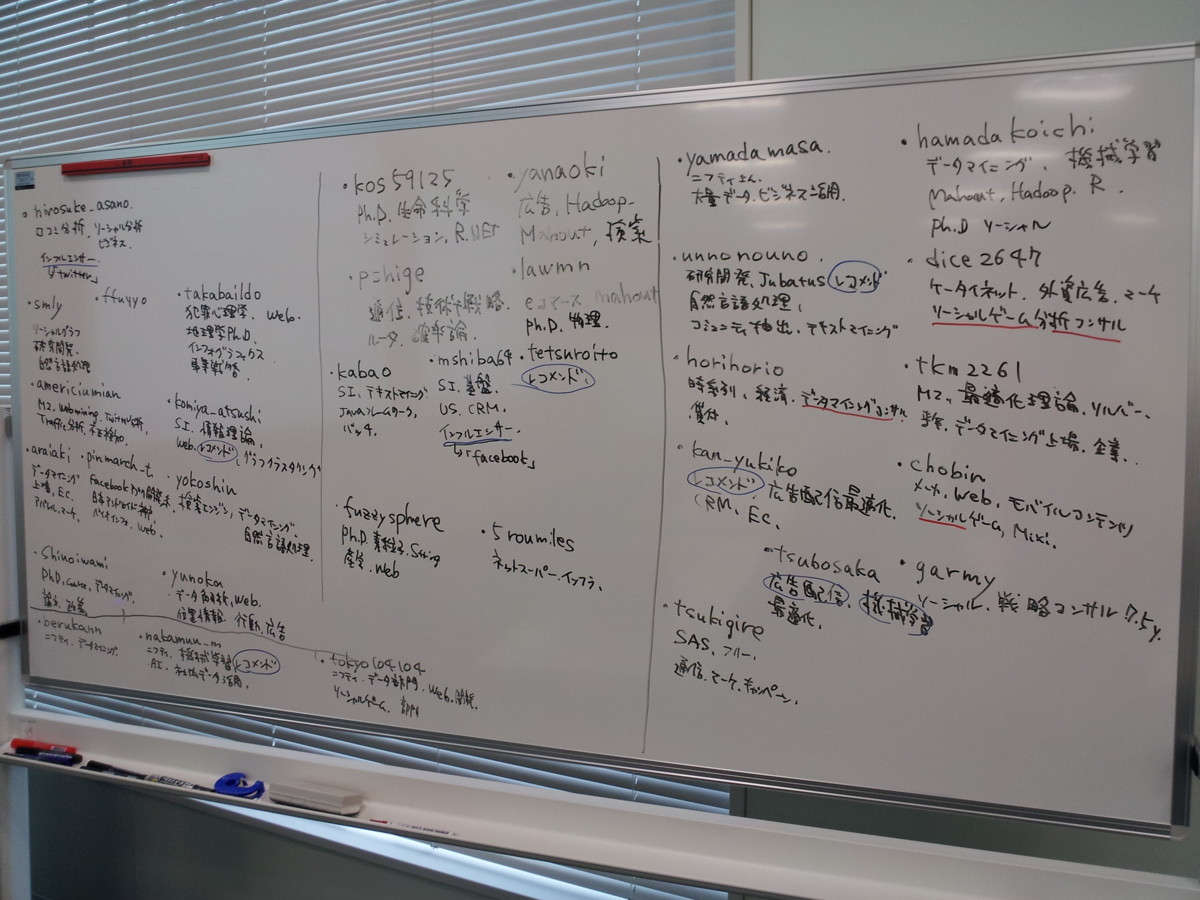 ・hirosuke_asano.
口コミ分析、ソーシャル分析
ビジネス.
インフルエンサー.
「twitter」
・smly
ソーシャルグラフ
研究開発.
自然言語処理
・ffuyyo
・takabaildo
犯罪心理学. web.
地理学Ph.D.
インフォグラフィクス
・americiumian
M2, webmining, Twitter分析,
Traffic分析, 不正検知.
・komiya_atsushi
SI. 情報理論,
web. レコメンド, グラフクラスタリング
・araiaki
データマイニング
上場, EC.
アパレル, マーケ.
・pinmarch_t
バイオインフォ, web.
・yokoshin
検索エンジン, データマイニング.
自然言語処理.
・Shinoiwami
・yunoka
・データ解析, web.
位置情報. 行動, 広告
・berukann
ニフティ. データマイニング.
・nakamuu_m
ニフティ. 機械学習 レコメンド
AI. データ活用.
・kos59125
Ph.D. 生命科学
シミュレーション, R.NET
・yanaoki
広告, Hadoop,
Mahout, 検索
・pshige
通信, 技術戦略.
ルータ. 確率論.
・lawmn
eコマース. mahout
Ph.D. 物理.
・kabao
SI. テキストマイニング
Javaフレームワーク.
バッチ.
・mshiba64
SI. 基盤.
US. CRM.
インフルエンサー.
↳「facebook」
・tetsuroito
レコメンド.
・fuzzysphere
Ph.D. 素粒子. String
web
・5roumiles
ネットスーパー. インフラ.
・tokyo104104
ニフティ. データ部門. web. 開発.
ソーシャルゲーム. 部門
・yamadamasa.
ニフティさん.
大量データ. ビジネス活用.
・unnonouno.
研究開発. Jubatus レコメンド
自然言語処理.
コミュニティ抽出. テキストマイニング
・horihorio
時系列. 経済. データマイニングコンサル.
・kan_yukiko
レコメンド, 広告配信最適化.
CRM. EC.
・tsubosaka
広告配信. 機械学習
最適化.
・tsukigire
SAS. フリー.
通信. マーケ. キャンペーン.
・hamadakoichi
データマイニング. 機械学習
Mahout, Hadoop. R.
Ph.D ソーシャル
・dice2647
ケータイネット. 外資広告. マーケ
ソーシャルゲーム分析コンサル
・tkm2261
M2. 最適化理論. ソルバー.
データマイニング上場. 企業.
・chobin
メーカ, web. モバイルコンテンツ
ソーシャルゲーム, Mixi.
・garmy
ソーシャル. 戦略コンサル 7.5y.